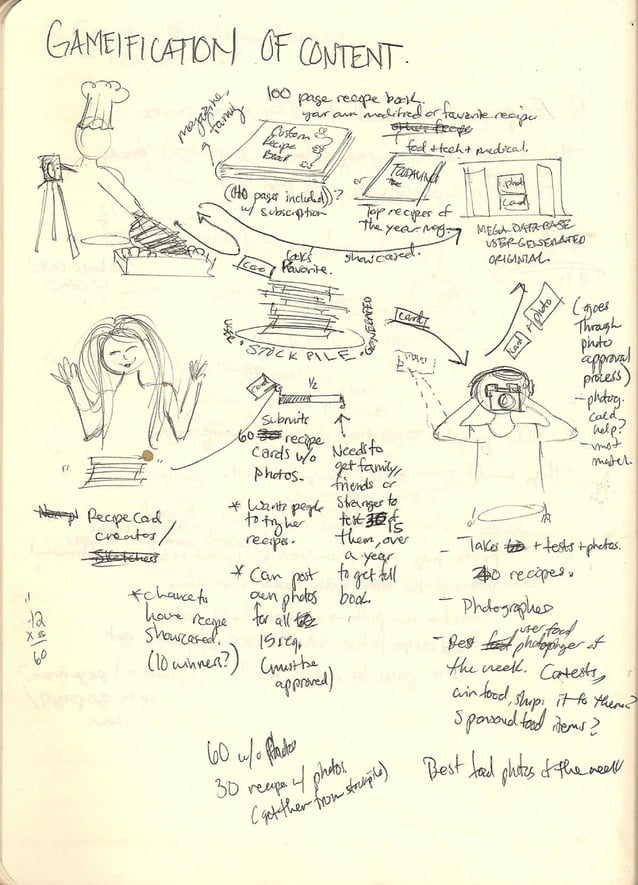 GAMEIFICATION OF CONTENT.
100 page recipe book.
your own modified or favorite recipe
magazine,
family
Custom
Recipe
Book
food + tech + medical.
(110 pages included)?
w/ subscription
or
Top recipes of
the year mag.
photo
card
MEGA DATABASE
USER GENERATED
ORIGINIAL.
card
favorite.
showcased.
USER GENERATED
STOCK PILE
card
card + photo
(goes
through
photo
approval
process)
- photog.
could
help?
- must
match.
card
1/2
Submits
60 30 recipe
cards w/o
photos.
* Wants people
to try her
recipes.
* Can post
own photos
for all
15 req.
(must be
approved)
Needs to
get family,
friends or
stranger to
test 30 of 15
them, over
a year
to get full
book.
Recipe Card
creates/
Sketches
* chance to
have recipe
showcased.
(10 winners?)
12
x 5
60
- Takes + tests + photos.
recipes.
- Photographer
- Best food user food photographer of
the week. Contests,
win food, ship it to them?
Sponsored food items?
60 w/o Photos
30 recipe w/ photos
(got them from stockpile)
Best food photos of the week